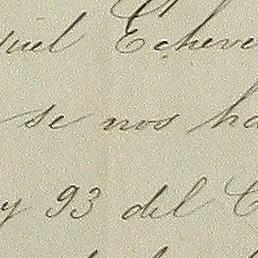 uel Echeve
se nos ha
y 93 del C